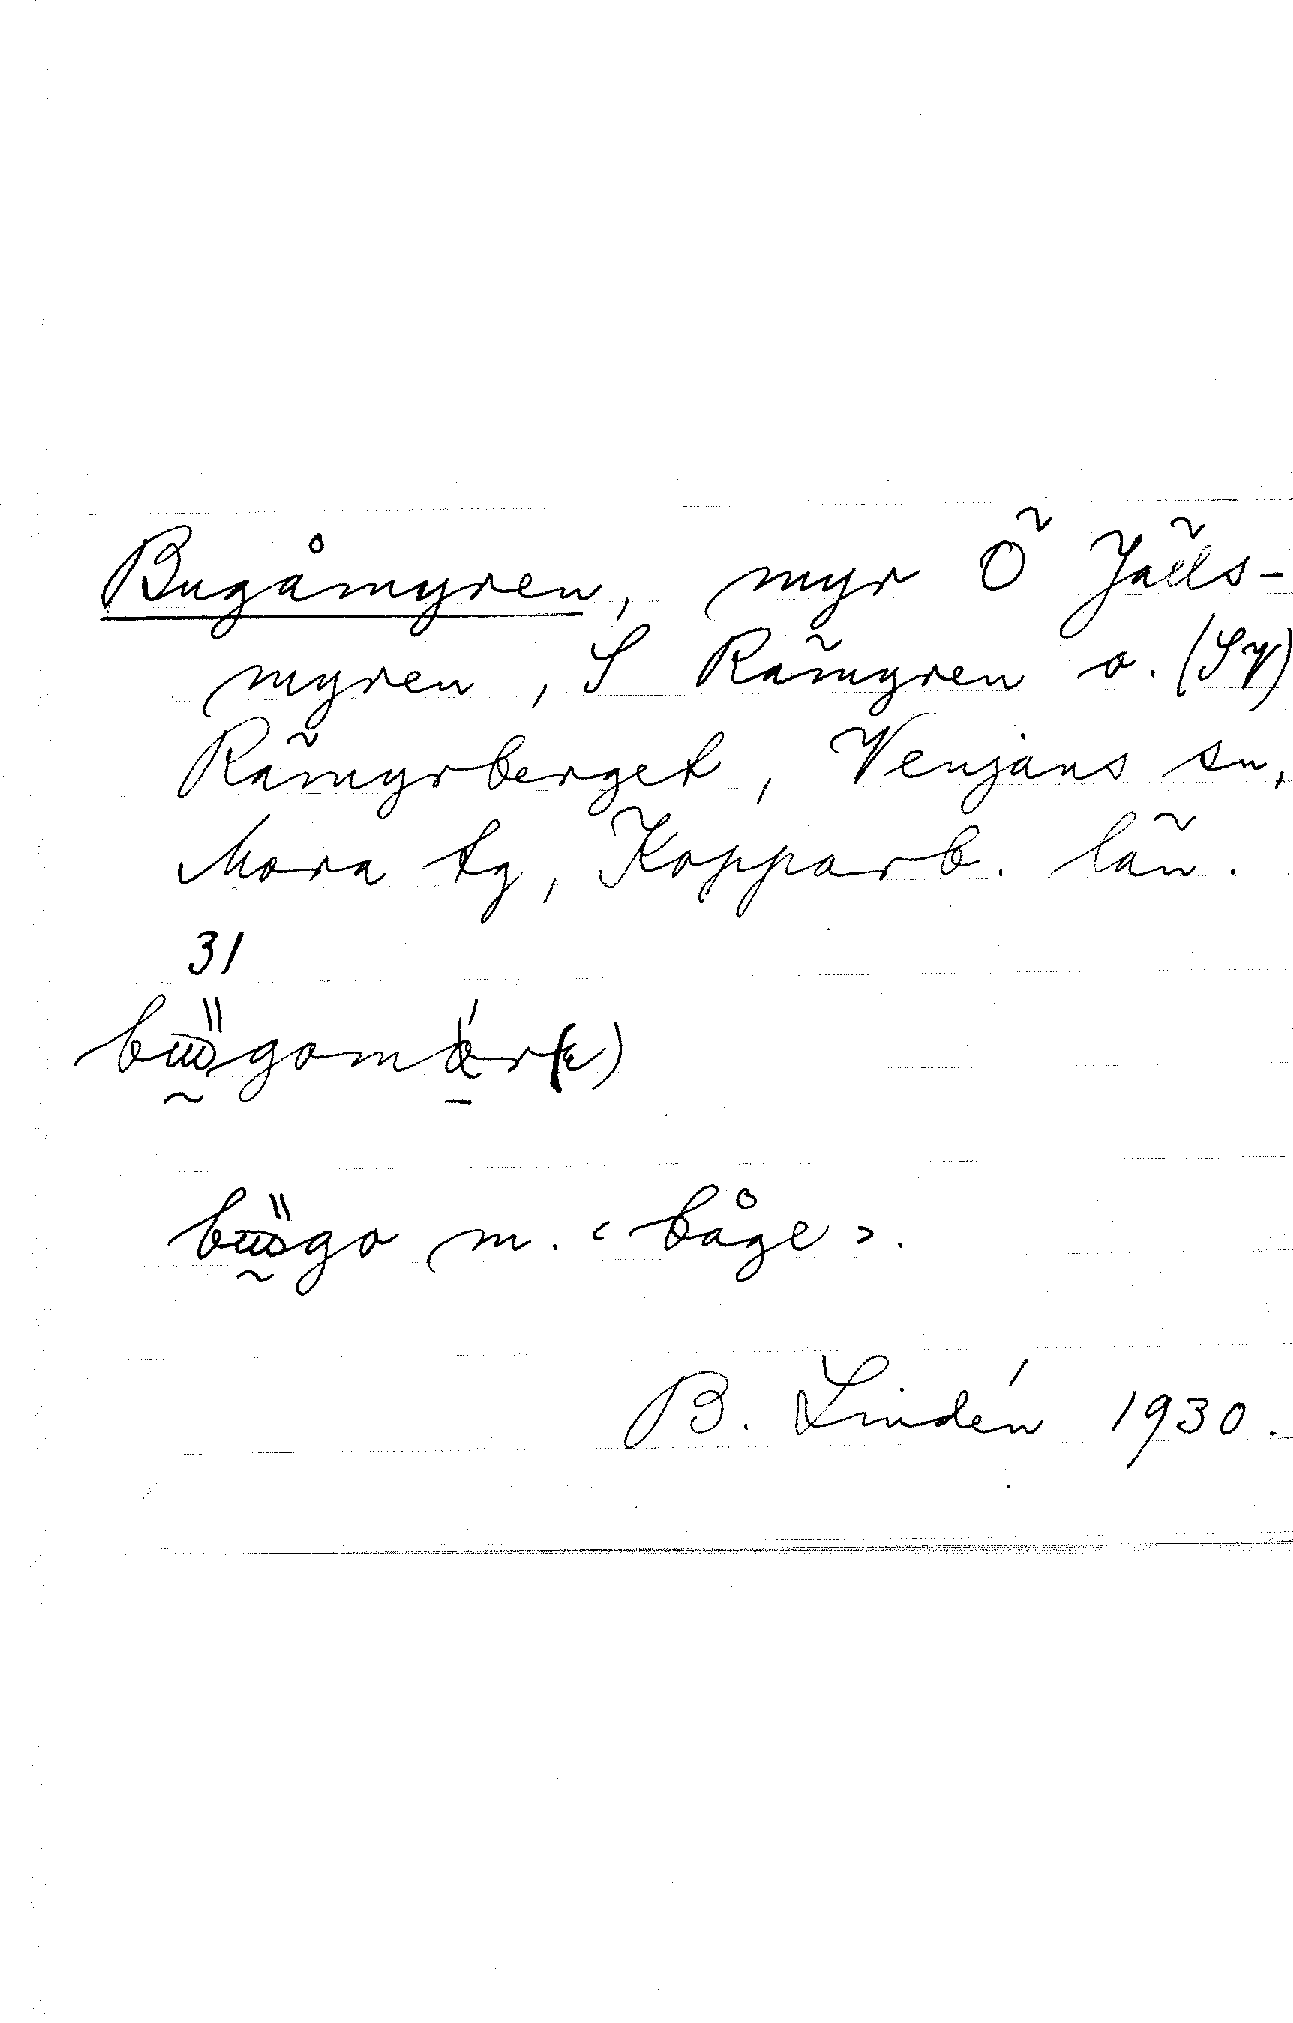 Bugåmyren, myr Ö Jälls-
myren, S Rämyren o. (SV)
Rämyrberget, Venjans sn,
Mora tg, Kopparb. län.
31
būgomör(e)
būgo m. ‹båge›.
B. Lindén 1930.